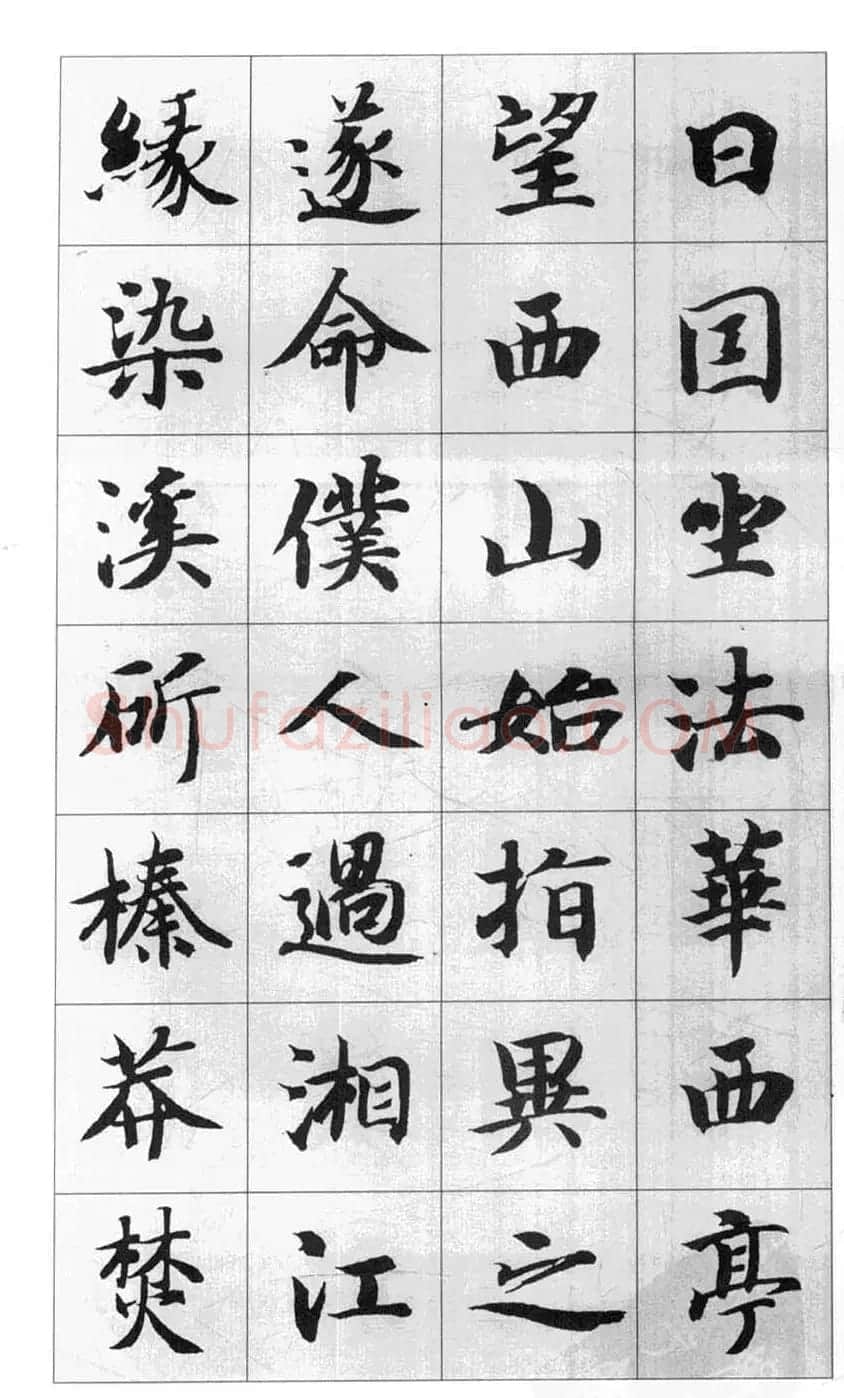 日因坐法華西亭
望西山始指異之
遂命僕人過湘江
緣染溪斫榛莽焚
Shufaziliao.COM